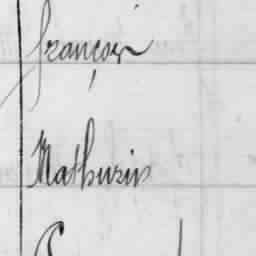 françois
Mathurin